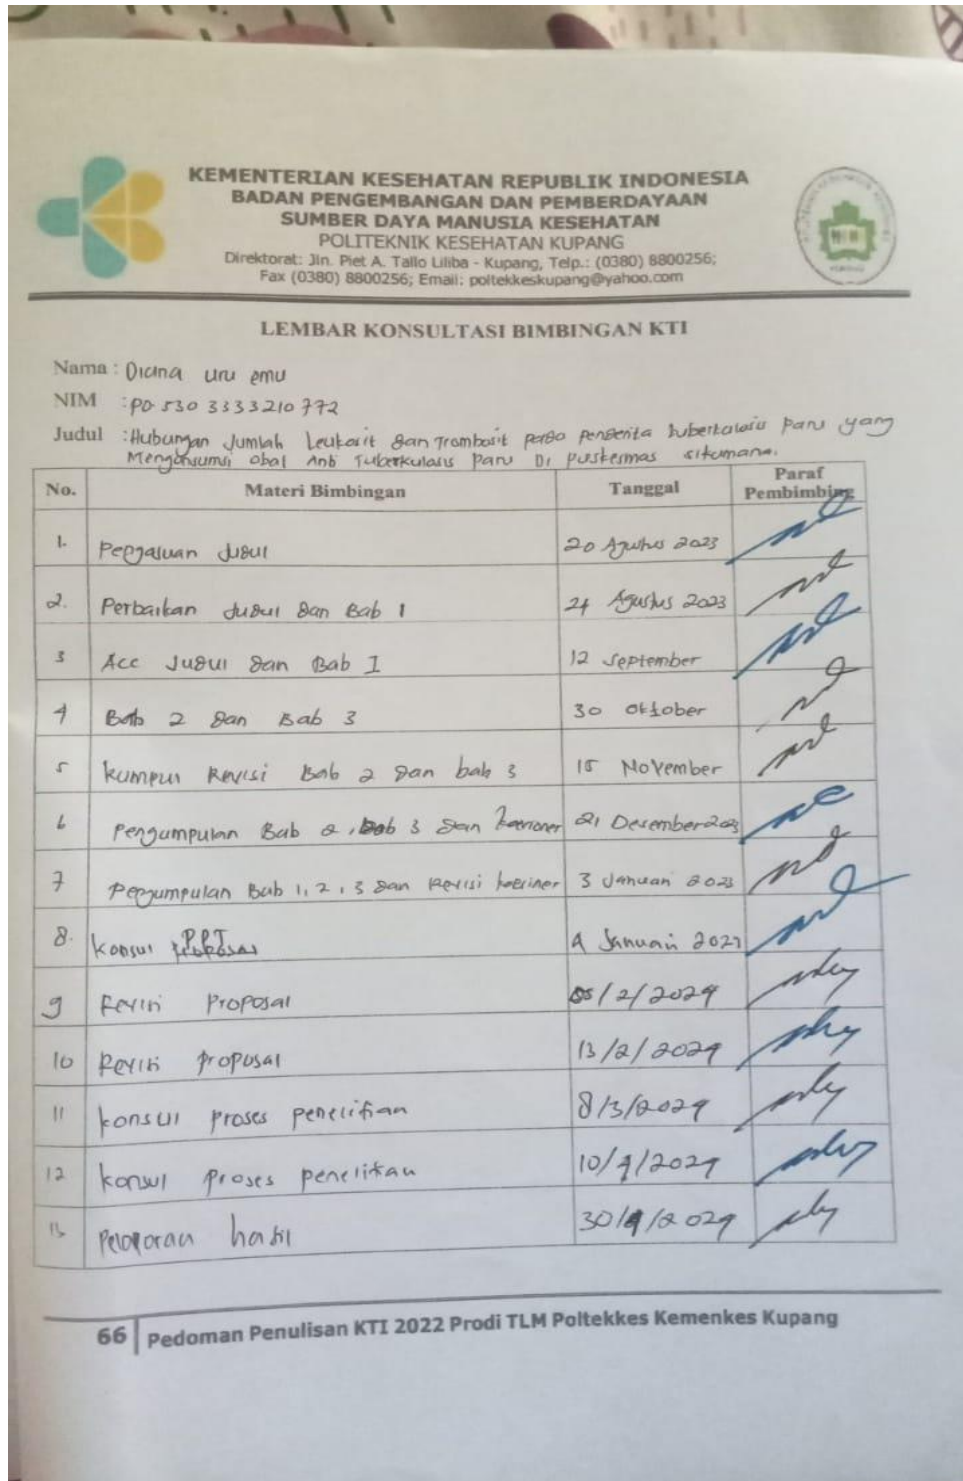 KEMENTERIAN KESEHATAN REPUBLIK INDONESIA
BADAN PENGEMBANGAN DAN PEMBERDAYAAN
SUMBER DAYA MANUSIA KESEHATAN
POLITEKNIK KESEHATAN KUPANG
Direktorat: Jln. Piet A. Tallo Liliba - Kupang, Telp.: (0380) 8800256;
Fax (0380) 8800256; Email: poltekkeskupang@yahoo.com
LEMBAR KONSULTASI BIMBINGAN KTI
Nama : Diana uru emu
NIM : PO 530 3333210 772
Judul : Hubungan Jumlah Leukosit dan Trombosit pada penderita tuberkulosis paru yang
Mengonsumsi obat Anti Tuberkulosis Paru Di puskesmas sikumana.
No. Materi Bimbingan Tanggal Paraf Pembimbing
1. Pengajuan Judul 20 Agustus 2023
2. Perbaikan Judul dan Bab 1 24 Agustus 2023
3 Acc Judul dan Bab I 12 September
4 Bab 2 dan Bab 3 30 Oktober
5 kumpul Revisi Bab 2 dan bab 3 15 November
6 Pengumpulan Bab 2, Bab 3 dan 21 Desember 2023
7 Pengumpulan Bab 1, 2, 3 dan Revisi 3 Januari 2023
8. konsul PPT 4 Januari 2023
9 Revisi Proposal 05/2/2024
10 Revisi Proposal 13/2/2024
11 konsul proses penelitian 8/3/2024
12 konsul proses penelitian 10/4/2024
13 Pelaporan hasil 30/4/2024
66 Pedoman Penulisan KTI 2022 Prodi TLM Poltekkes Kemenkes Kupang